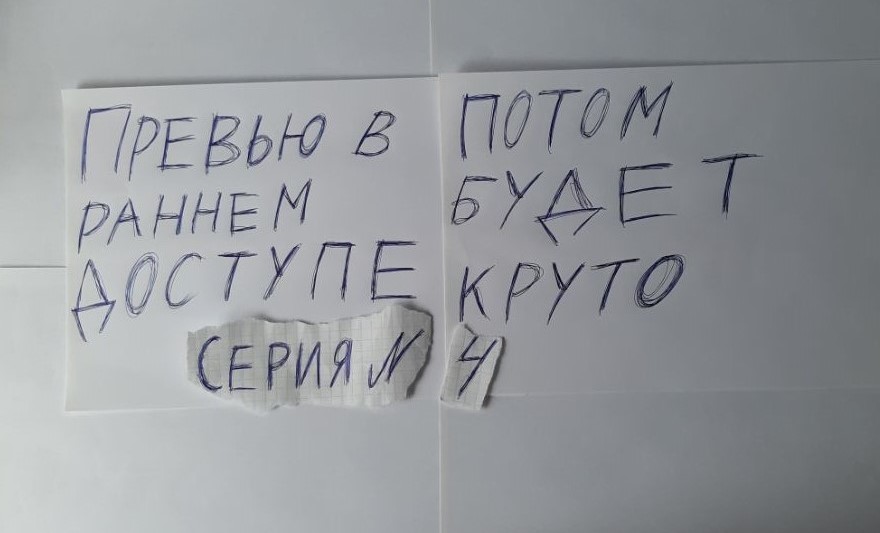 ПРЕВЬЮ В
РАННЕМ
ДОСТУПЕ
ПОТОМ
БУДЕТ
КРУТО
СЕРИЯ N 4